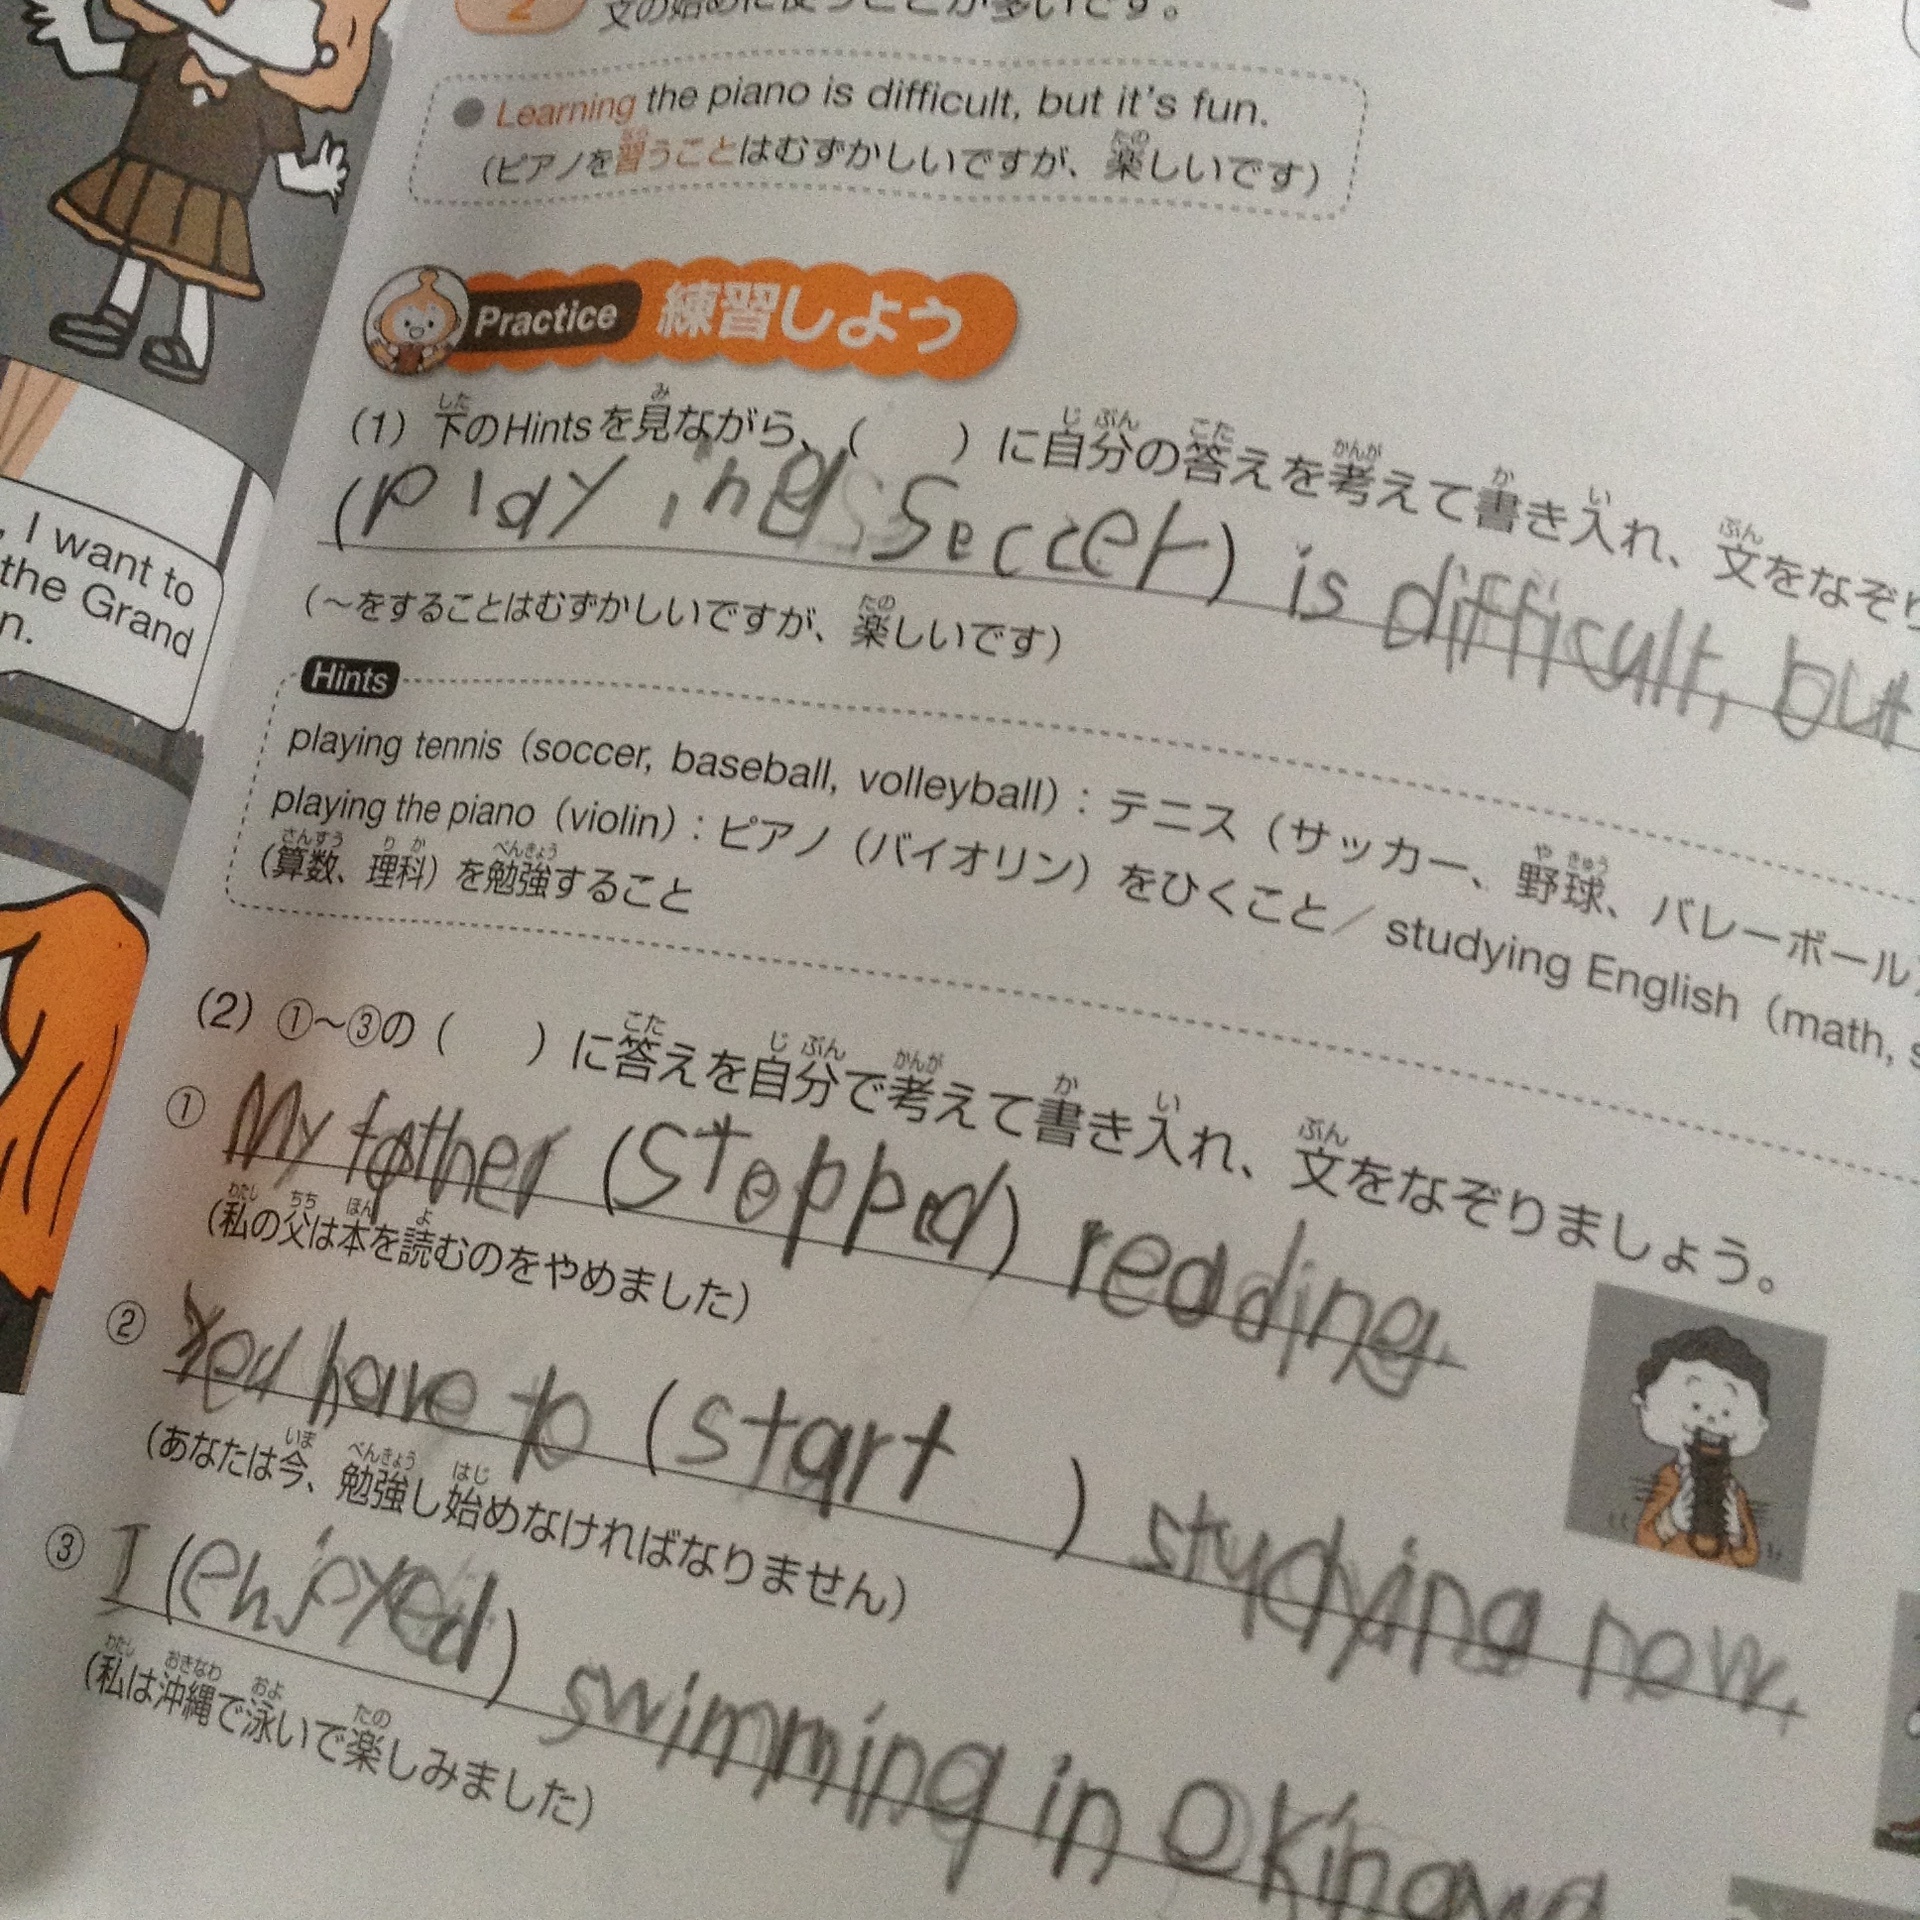 2 文の始めに使うことが多いです。
● Learning the piano is difficult, but it's fun.
(ピアノを習うことはむずかしいですが、楽しいです)
Practice 練習しよう
(1) 下のHintsを見ながら、( )に自分の答えを考えて書き入れ、文をなぞり
(playing soccer) is difficult, but
(〜をすることはむずかしいですが、楽しいです)
Hints
playing tennis (soccer, baseball, volleyball) : テニス (サッカー、野球、バレーボール)
playing the piano (violin) : ピアノ (バイオリン) をひくこと/ studying English (math, s
(算数、理科) を勉強すること
(2) ①〜③の ( ) に答えを自分で考えて書き入れ、文をなぞりましょう。
① My father (stopped) reading.
(私の父は本を読むのをやめました)
② You have to (start ) studying now.
(あなたは今、勉強し始めなければなりません)
③ I (enjoyed) swimming in Okinawa
(私は沖縄で泳いで楽しみました)
, I want to
the Grand
n.